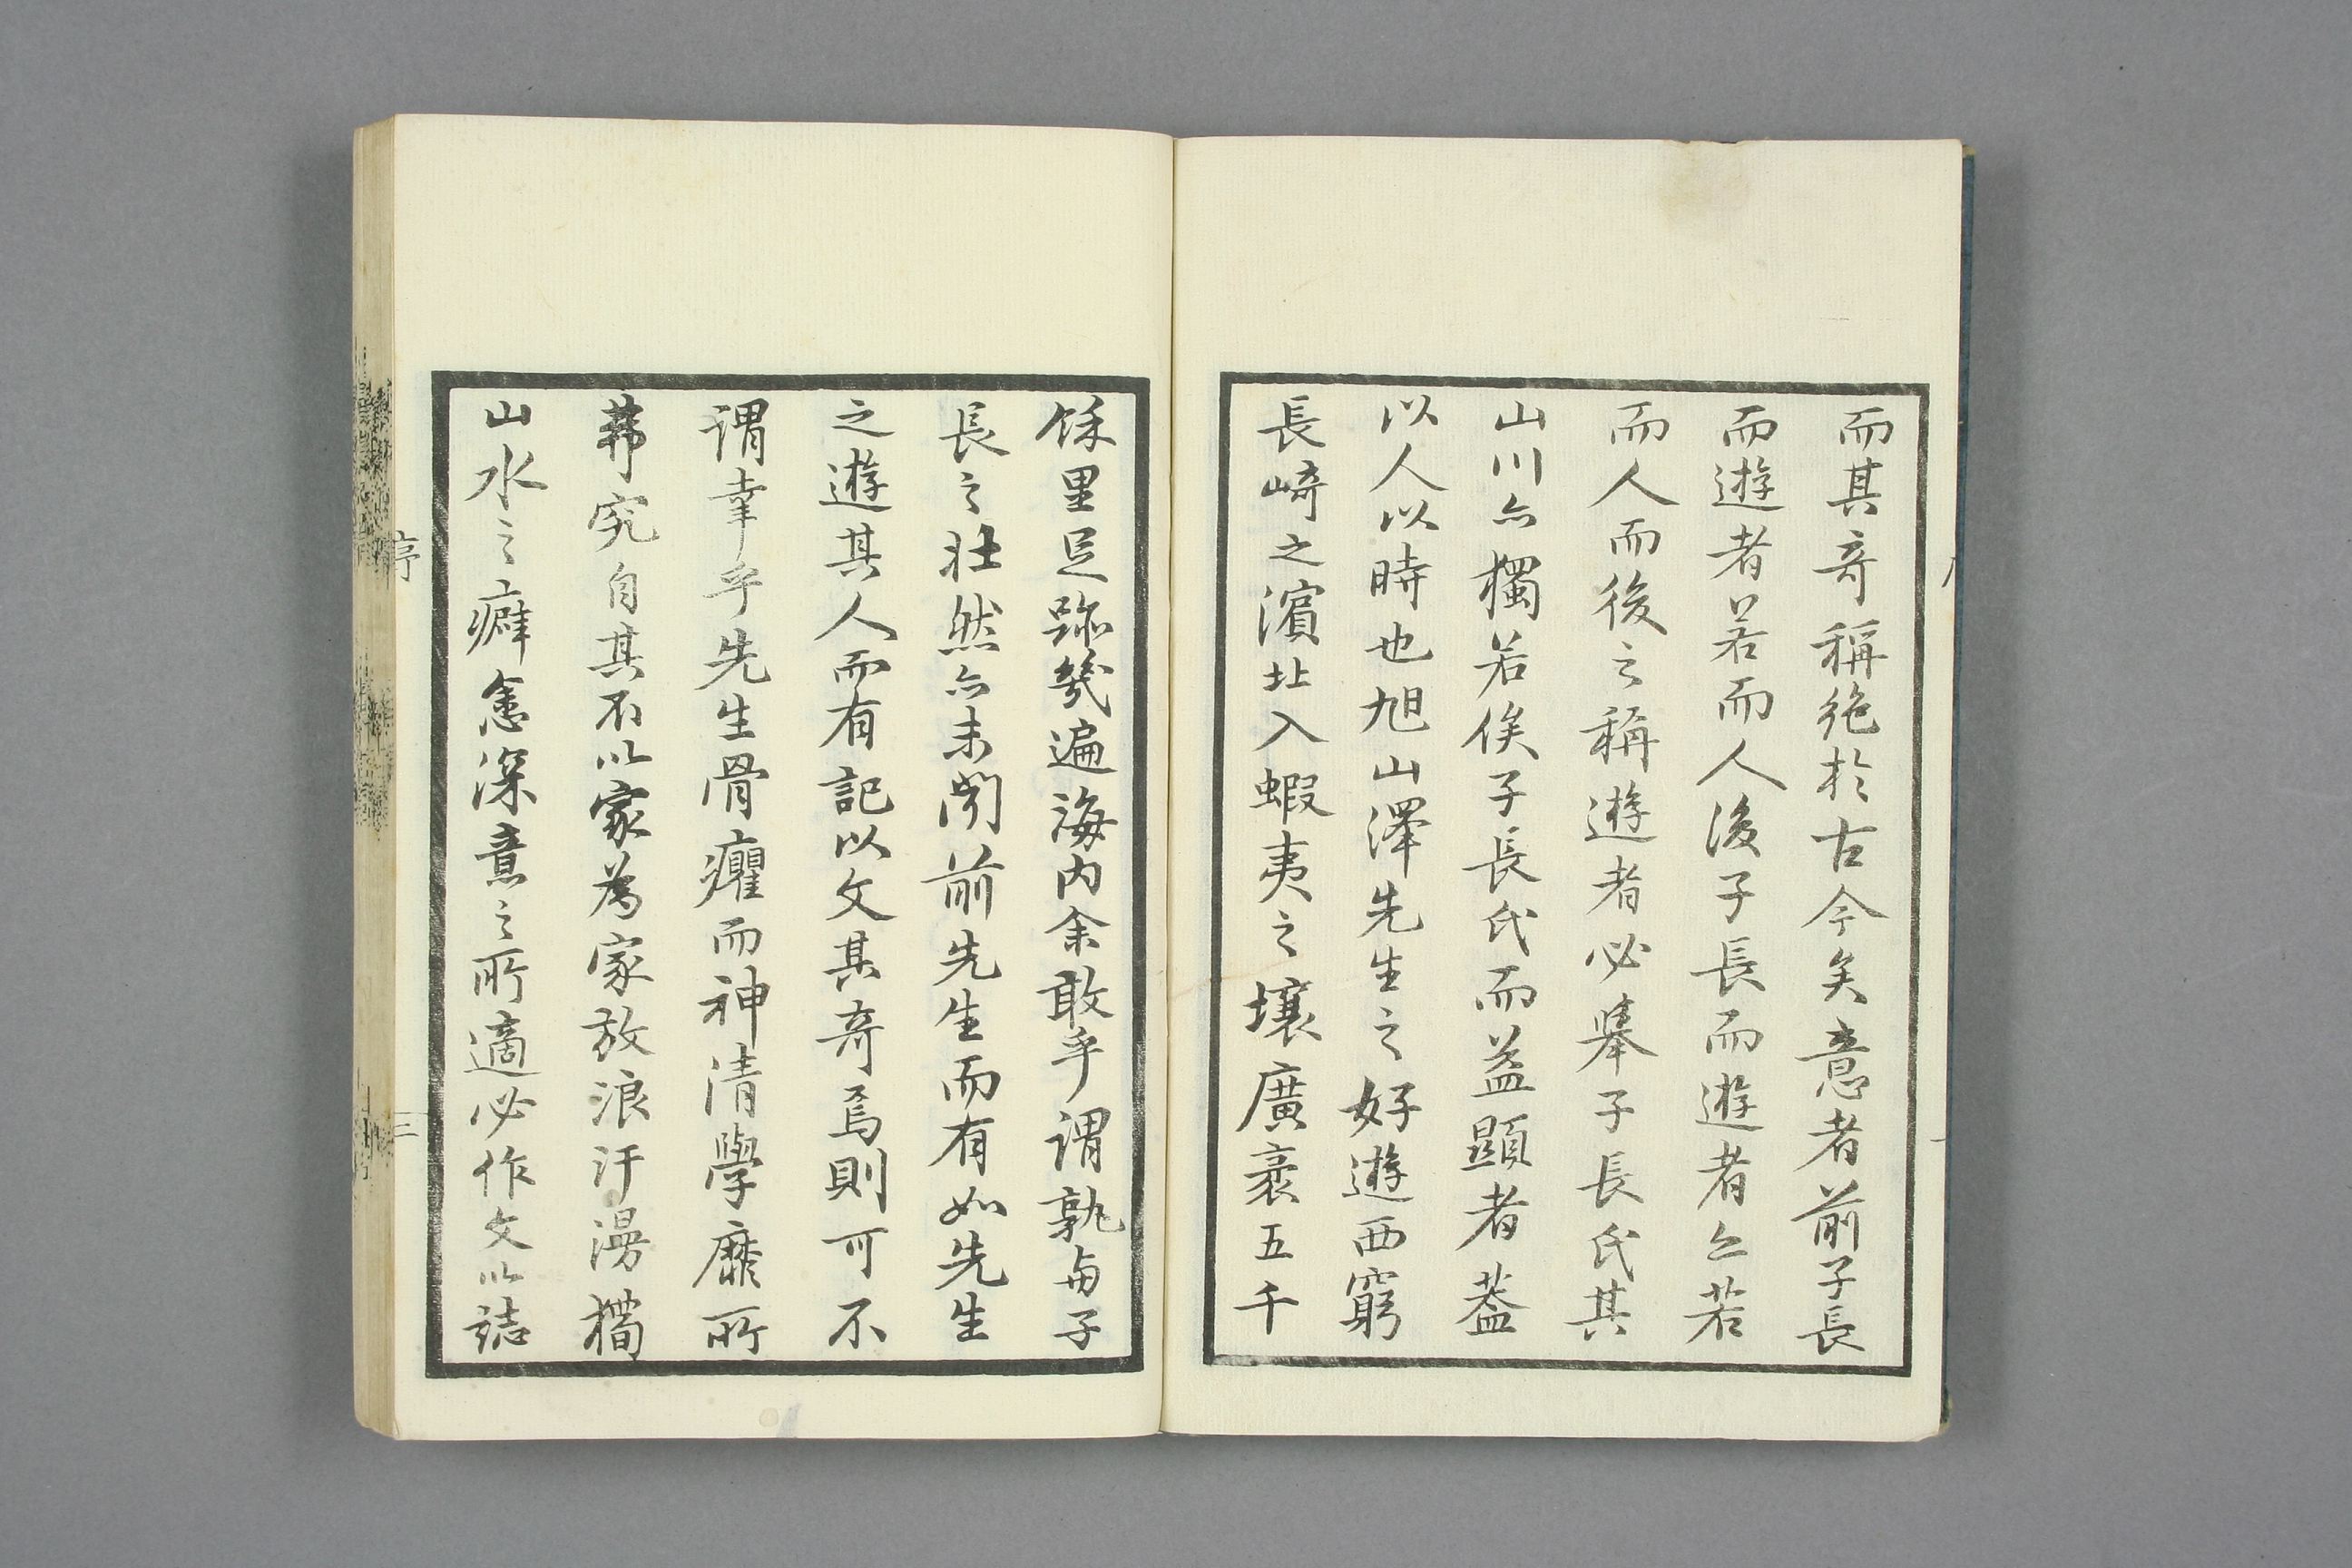 而其奇稱絶於古今矣意者前子長
而遊者若而人後子長而遊者亦若
而人而後之稱遊者必擧子長氏其
山川亦獨若俟子長氏而益顯者蓋
以人以時也旭山澤先生之好遊西窮
長崎之濵北入蝦夷之壤廣袤五千
餘里足跡幾遍海内余敢乎謂孰與子
長之壯然亦未聞前先生而有如先生
之遊其人而有記以文其奇焉則可不
謂幸乎先生骨癯而神清學靡所
弗究自其不以家爲家放浪汗漫獨
山水之癖愈深意之所適必作文以誌
序
三